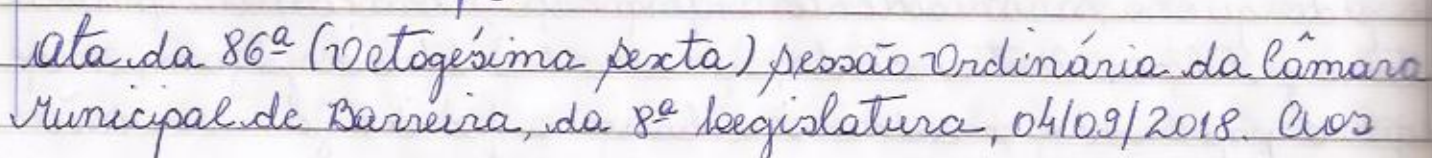 Ata da 86ª (Octogésima sexta) sessão Ordinária da Câmara
Municipal de Barreira, da 8ª legislatura, 04/09/2018. Aos